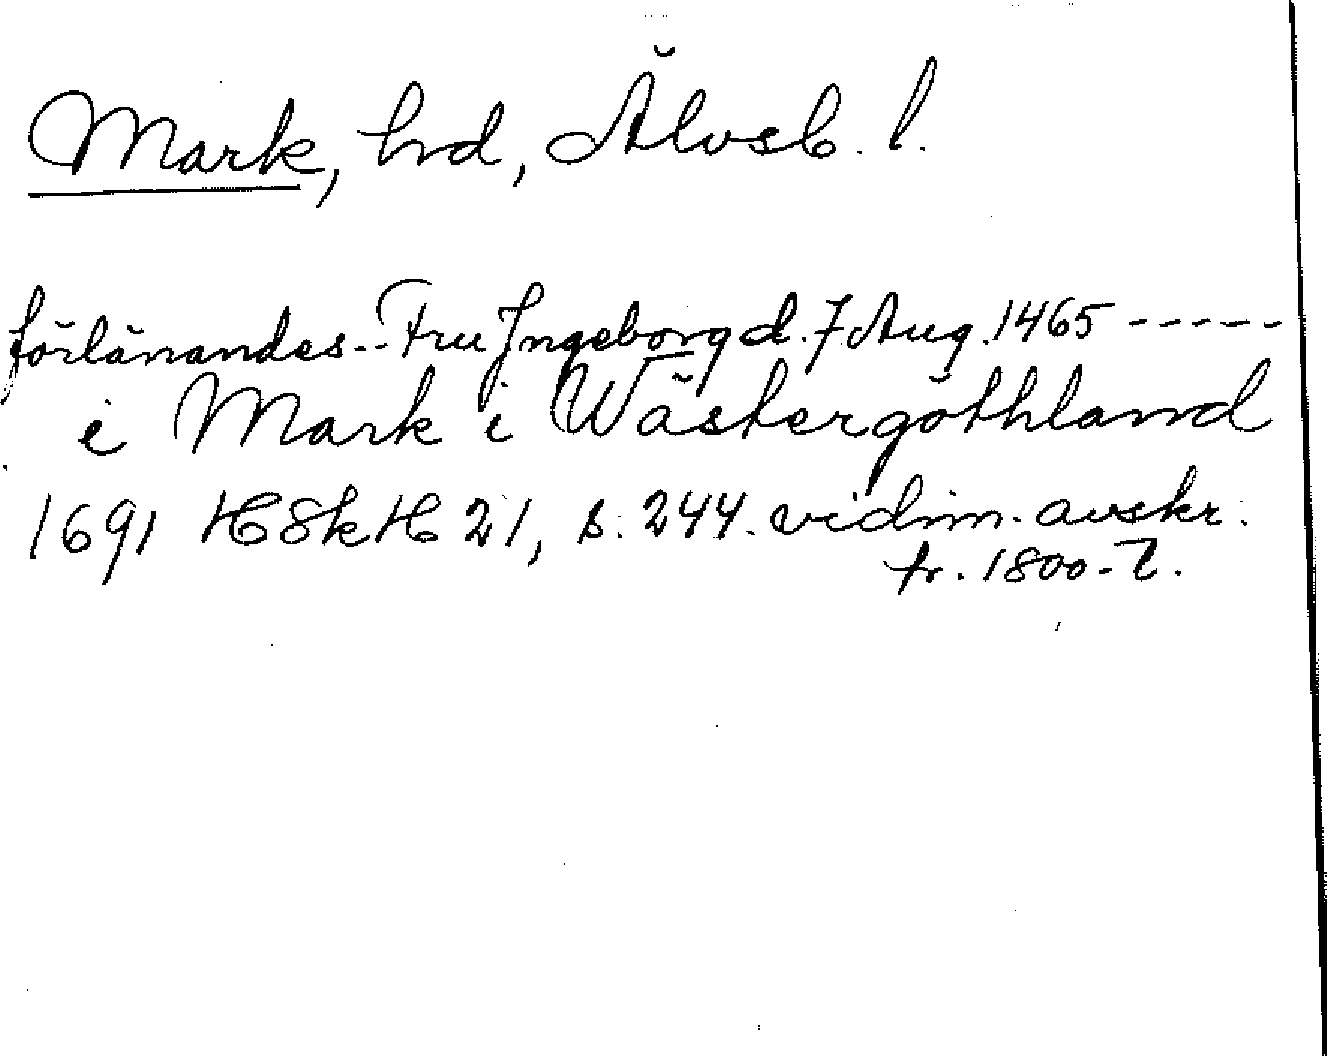 Mark, hd, Älvsb. l.
förlänandes -- Fru Ingeborg d. 7 Aug. 1465 -----
i Mark i Wästergöthland
1691 HSkH 21, s. 244. vidim. avskr.
fr. 1800-t.